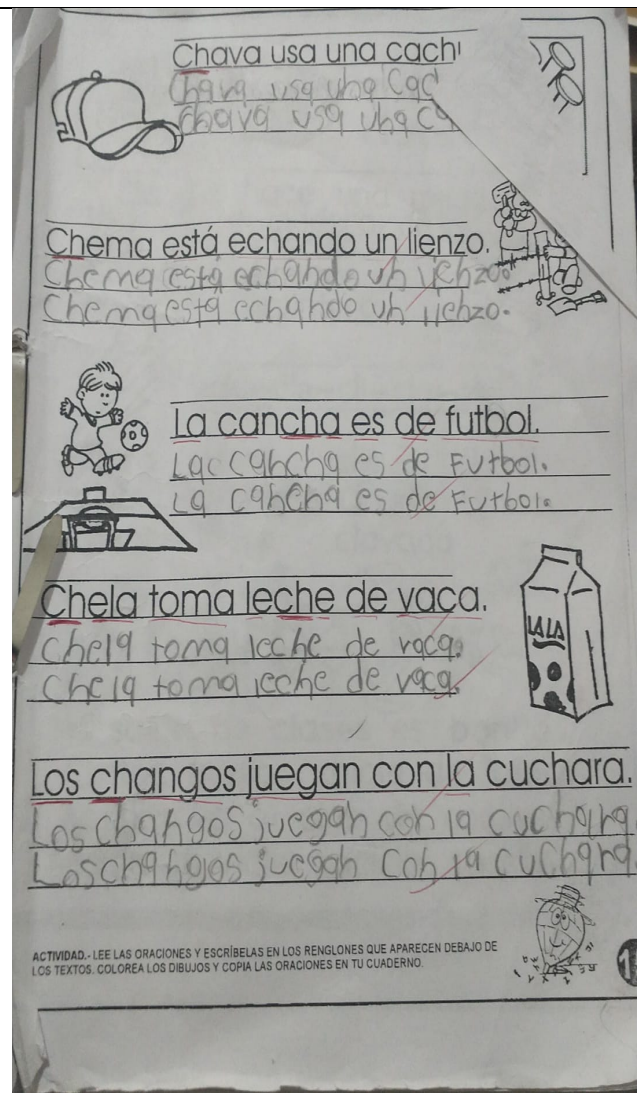 Chava usa una cach
Chava usa una Cac
Chava usa una ca
Chema está echando un lienzo.
Chema esta echando un lienzo.
Chema esta echando un lienzo.
La cancha es de futbol.
La cancha es de Futbol.
La cancha es de Futbol.
Chela toma leche de vaca.
LALA
Chela toma leche de vaca.
Chela toma leche de vaca.
Los changos juegan con la cuchara.
Los changos juegan con la cuchara
Los changos juegan con la cuchara
ACTIVIDAD.- LEE LAS ORACIONES Y ESCRÍBELAS EN LOS RENGLONES QUE APARECEN DEBAJO DE
LOS TEXTOS. COLOREA LOS DIBUJOS Y COPIA LAS ORACIONES EN TU CUADERNO.